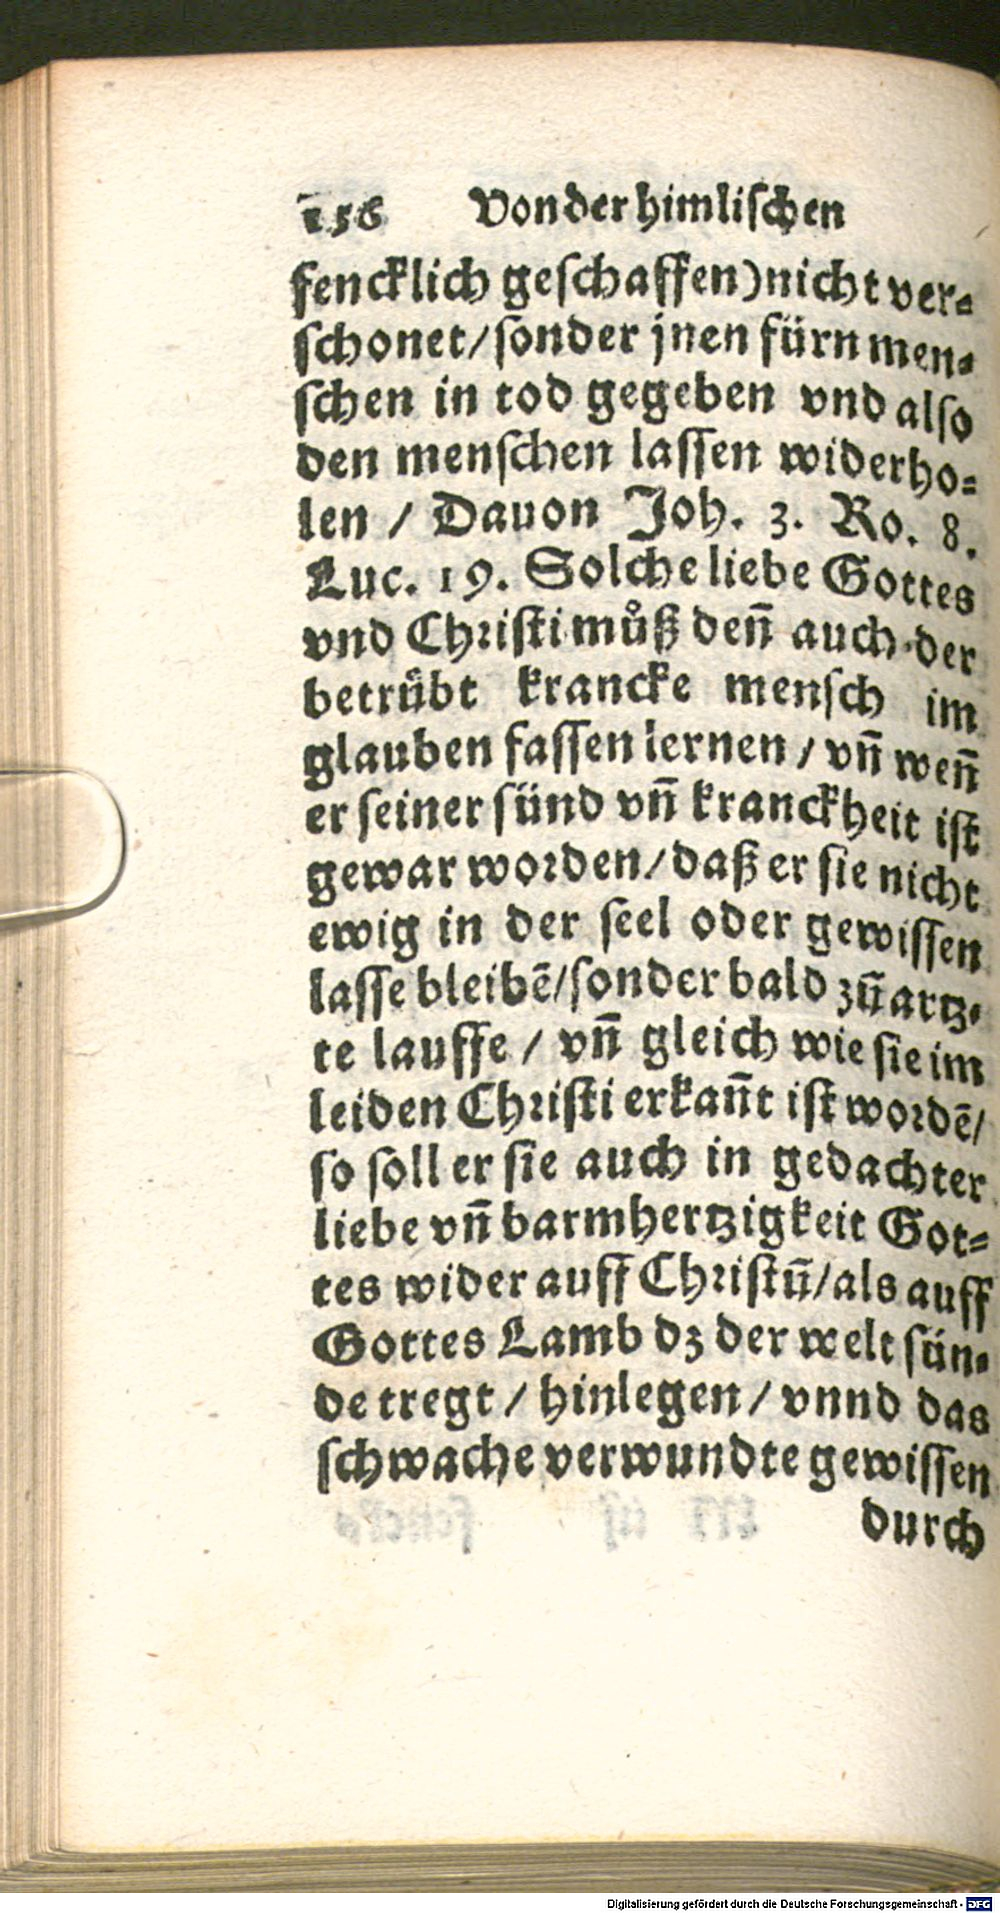 156 Von der himlischen
fencklich geschaffen) nicht ver-
schonet / sonder jnen fürn men-
schen in tod gegeben vnd also
den menschen lassen widerho-
len / Dauon Joh. 3. Ro. 8.
Luc. 19. Solche liebe Gottes
vnd Christi můß deñ auch der
betrübt krancke mensch im
glauben fassen lernen / vñ weñ
er seiner sünd vñ kranckheit ist
gewar worden / daß er sie nicht
ewig in der seel oder gewissen
lasse bleibẽ / sonder bald zũ artz-
te lauffe / vñ gleich wie sie im
leiden Christi erkañt ist wordẽ /
so soll er sie auch in gedachter
liebe vñ barmhertzigkeit Got-
tes wider auff Christũ / als auff
Gottes Lamb dz der welt sün-
de tregt / hinlegen / vnnd das
schwache verwundte gewissen
durch
Digitalisierung gefördert durch die Deutsche Forschungsgemeinschaft - DFG